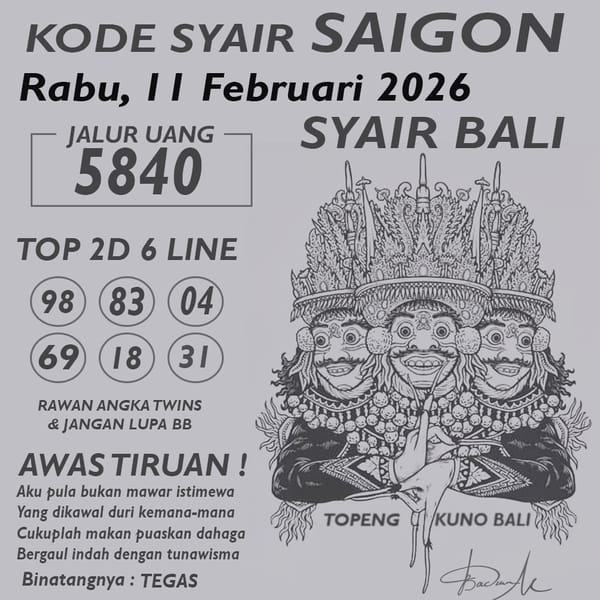 KODE SYAIR SAIGON
Rabu, 11 Februari 2026
SYAIR BALI
JALUR UANG
5840
TOP 2D 6 LINE
98 83 04
69 18 31
RAWAN ANGKA TWINS
& JANGAN LUPA BB
AWAS TIRUAN !
Aku pula bukan mawar istimewa
Yang dikawal duri kemana-mana
Cukuplah makan puaskan dahaga
Bergaul indah dengan tunawisma
Binatangnya : TEGAS
TOPENG KUNO BALI